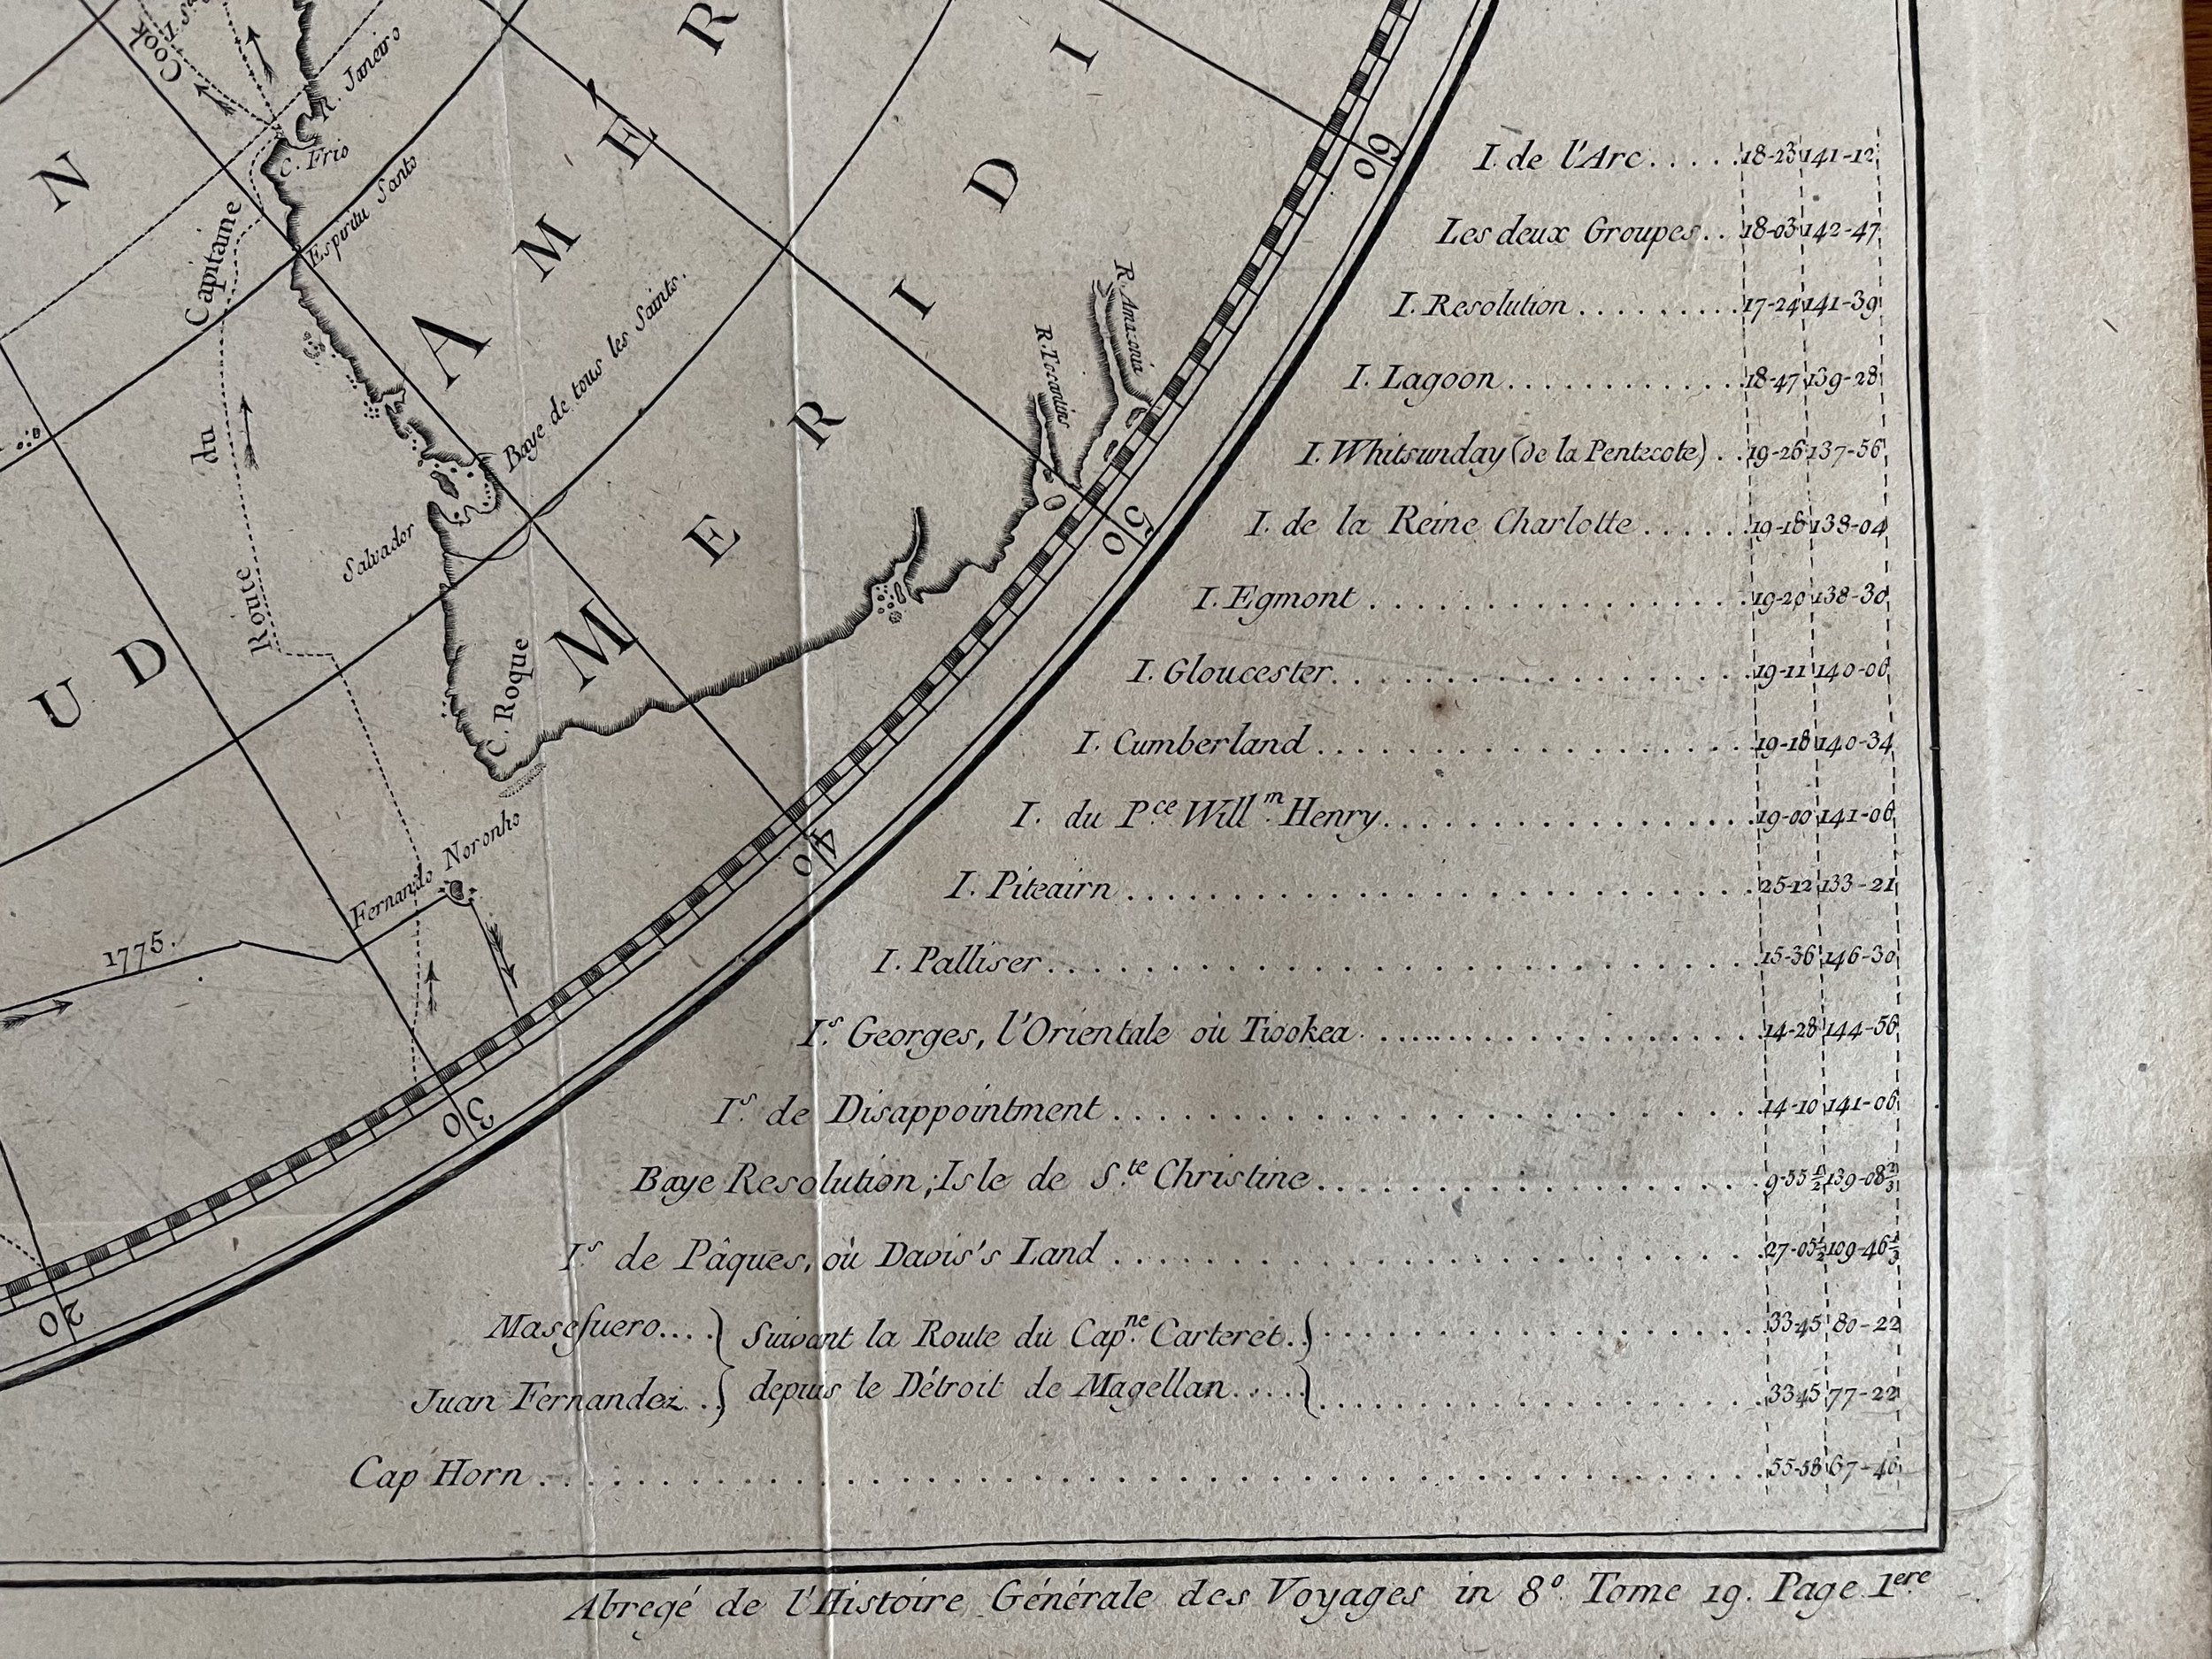 N
U D
A M É R
M E R I D I
Cook
R. Janeiro
C. Frio
Espiritu Santo
Capitaine
du
Route
Baye de tous les Saints.
Salvador
C. Roque
R. Tocantins
R. Amazonia
Fernando Noronho
1775.
60
50
40
30
20
I. de l'Arc..... 18-23 141-12
Les deux Groupes.. 18-03 142-47
I. Resolution......... 17-24 141-39
I. Lagoon............. 18-47 139-28
I. Whitsunday (de la Pentecote).. 19-26 137-56
I. de la Reine Charlotte..... 19-18 138-04
I. Egmont................ 19-20 138-30
I. Gloucester................. 19-11 140-06
I. Cumberland................. 19-18 140-34
I. du P.ce Will.m Henry............... 19-00 141-06
I. Pitcairn......................... 25-12 133-21
I. Palliser......................... 15-36 146-30
I.s Georges, l'Orientale où Tiookea................. 14-28 144-56
I.s de Disappointment......................... 14-10 141-06
Baye Resolution; Isle de S.te Christine................. 9-55 1/2 139-08 2/3
I.s de Pâques, où Davis's Land......................... 27-05 1/2 109-46 1/3
Masefuero.... } Suivant la Route du Cap.ne Carteret. }................. 33-45 80-22
Juan Fernandez.. } depuis le Détroit de Magellan..... }................. 33-45 77-22
Cap Horn........................................... 55-58 67-46
Abregé de l'Histoire Générale des Voyages in 8º. Tome 19. Page 1ere